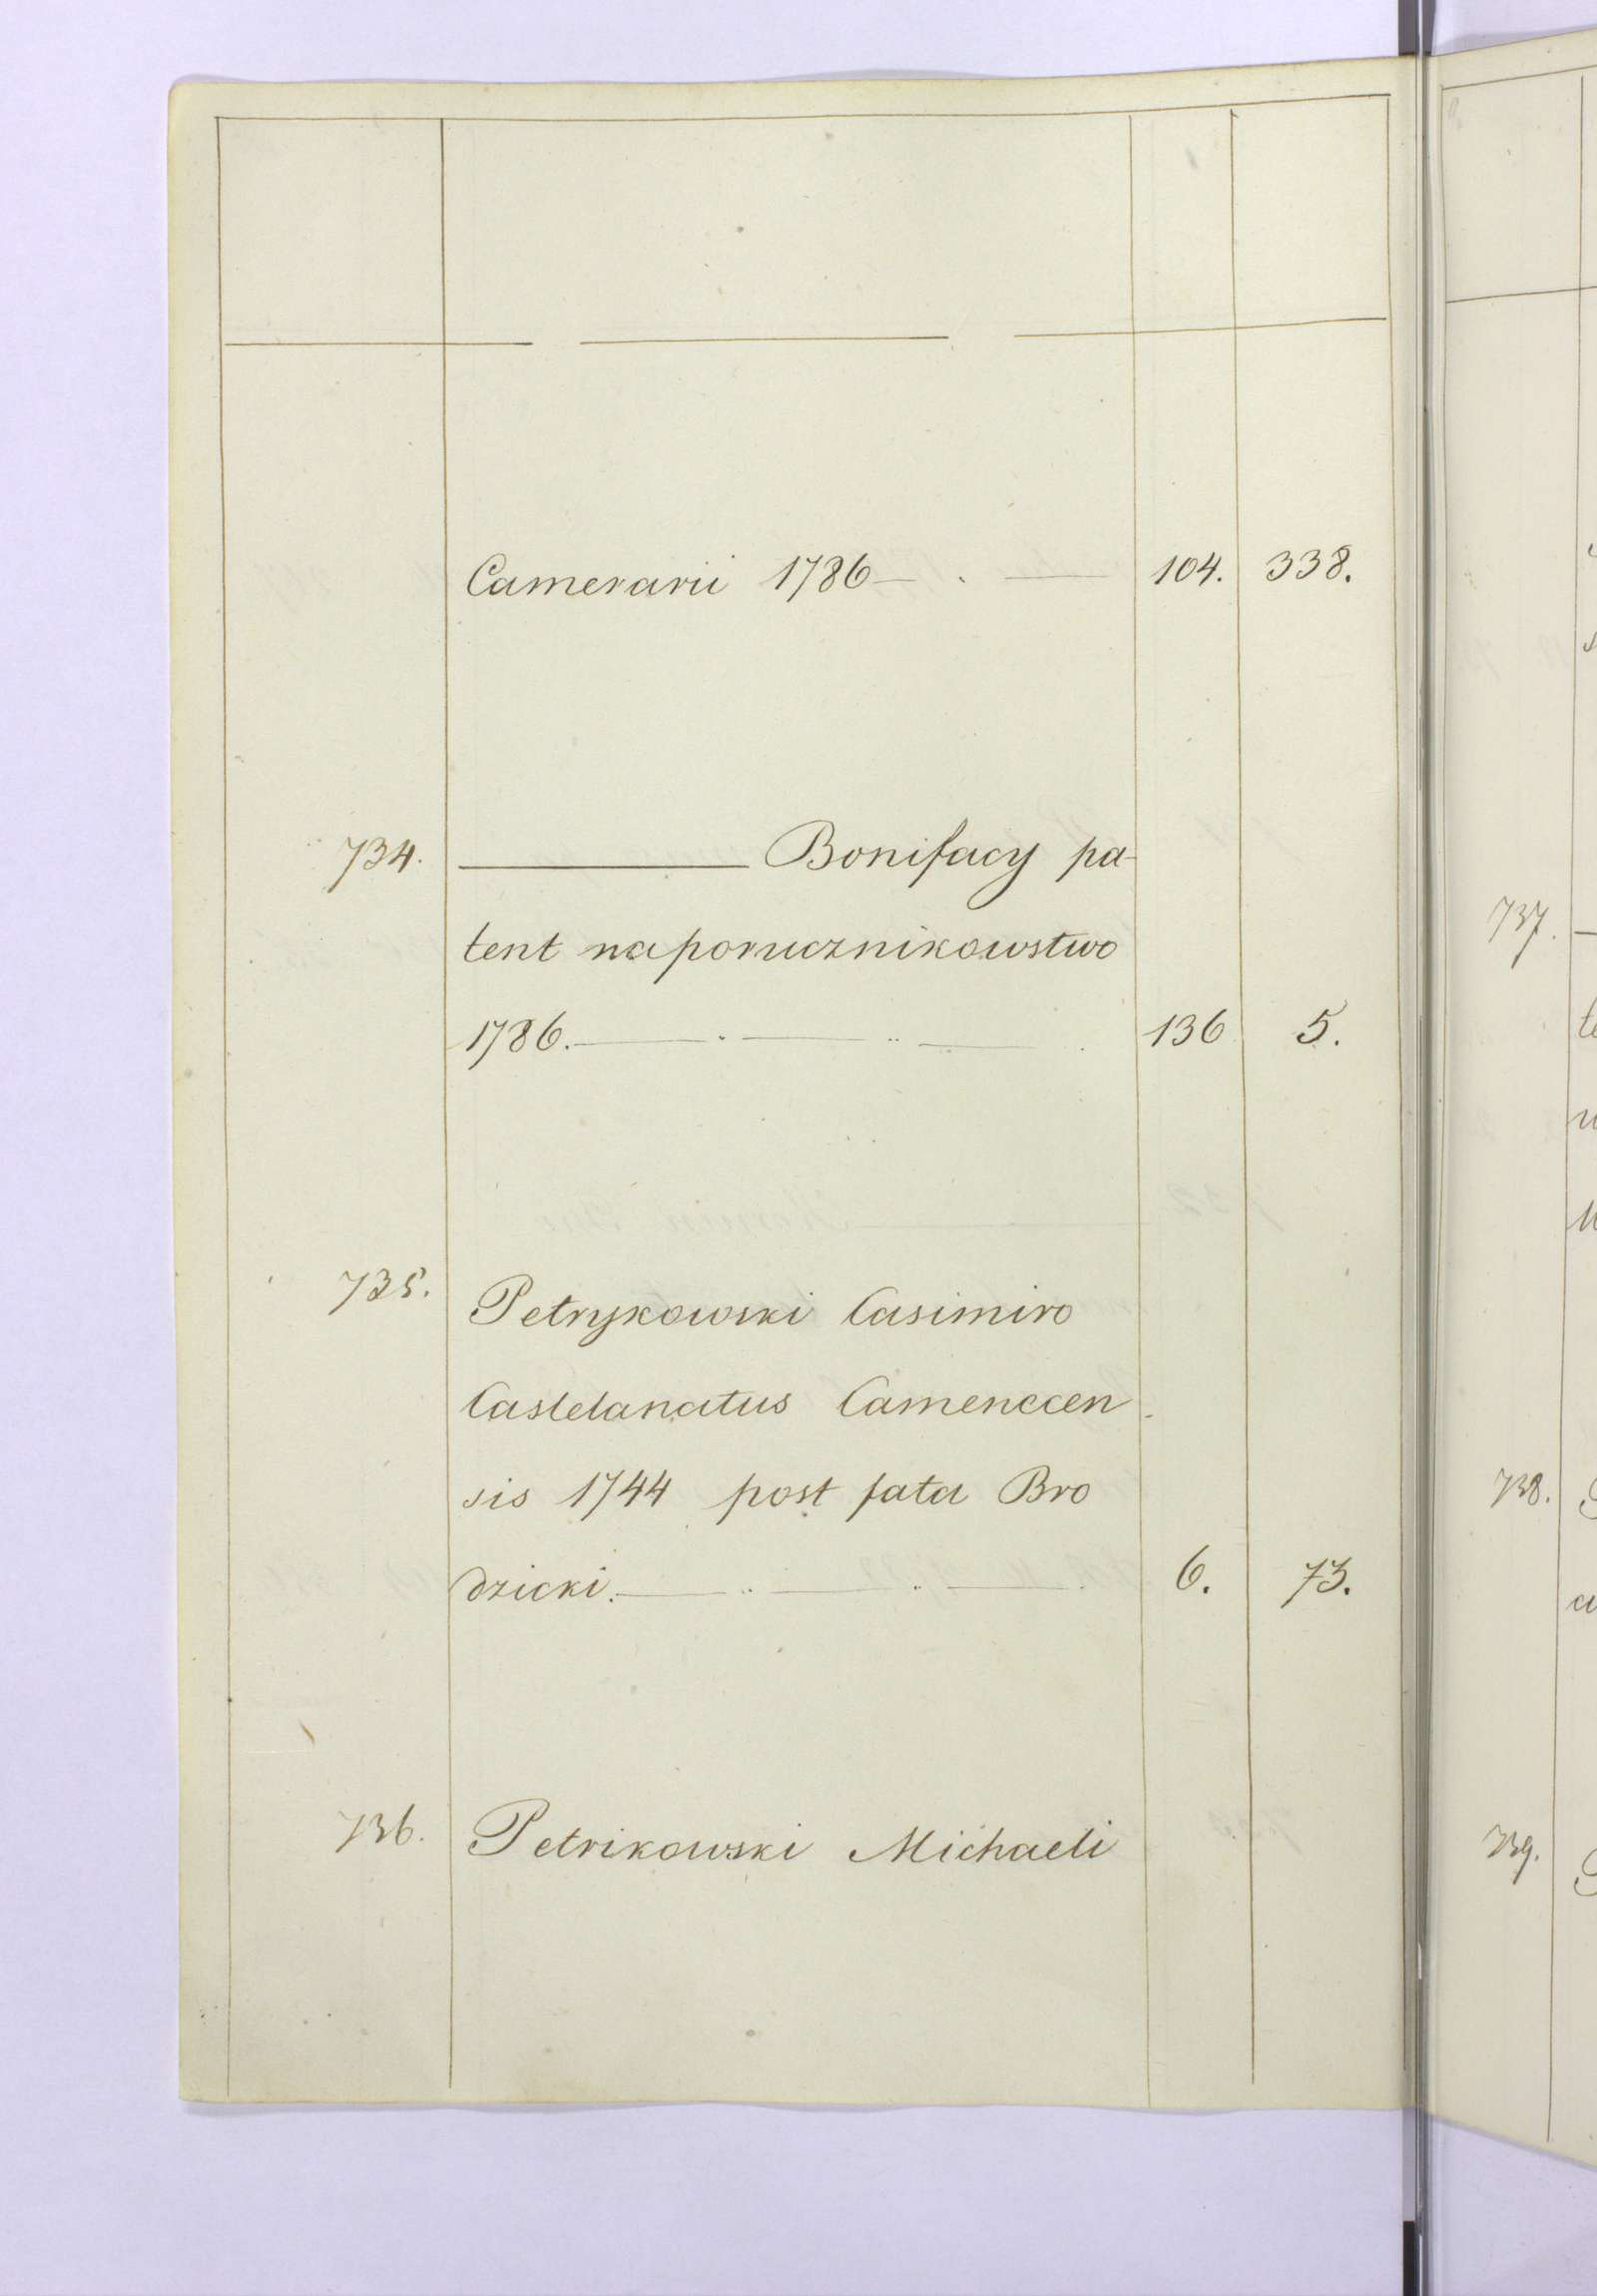 Camerarii 1786 — . — 104. 338.
734. ——— Bonifacy pa-
tent na porucznikowstwo
1786. — . — .. — . 136 5.
735. Petrykowski Casimiro
Castelanatus Camenecen-
sis 1744 post fata Bro
dzicki. — .. — . — . 6. 73.
736. Petrikowski Michaeli
737.
738.
739.